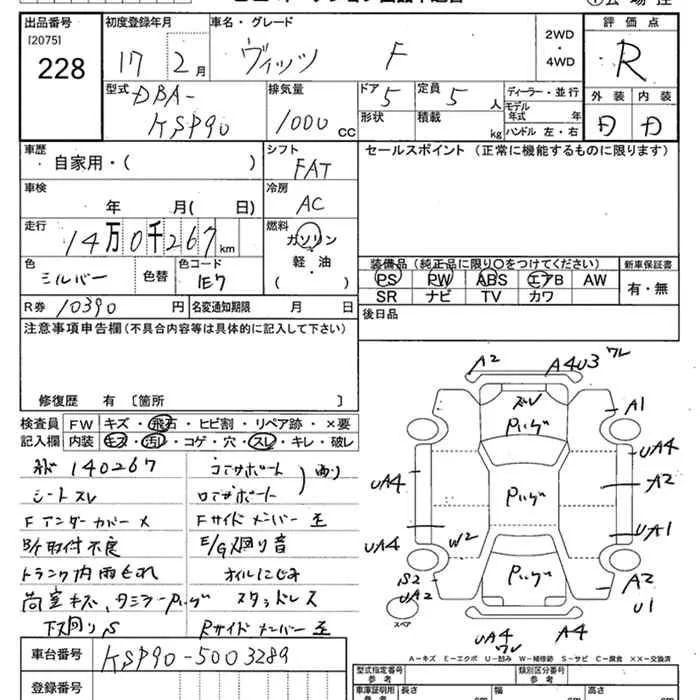 出品番号 初度登録年月 車名・グレード 評価点
[2075] 2WD
228 17 2月 ヴィッツ F ・ R
4WD
型式 DBA- 排気量 ドア 5 定員 5 人 ディーラー・並行 外装 内装
KSP90 1000 cc 形状 積載 kg モデル年式 年 D D
ハンドル 左・右
車歴 シフト セールスポイント (正常に機能するものに限ります)
自家用・( ) FAT
車検 冷房
年 月( 日) AC
走行 燃料
14万0千267km ガソリン
軽・油
( )
色 シルバー 色替 色コード 1E7
装備品 (純正品に限り○をつけてください) 新車保証書
PS PW ABS エアB AW 有・無
SR ナビ TV カワ
R券 10390 円 名変通知期限 月 日
後日品
注意事項申告欄 (不具合内容等は具体的に記入して下さい)
修復歴 有 〔箇所 〕
検査員 FW キズ・飛石・ヒビ割・リペア跡・×要
記入欄 内装 キズ・汚レ・コゲ・穴・スレ・キレ・破レ
140267 コアサポート
シートスレ ロアサポート
Fアンダーカバー× Fサイドメンバー歪
B/F取付不良 E/G廻り音
トランク内雨もれ オイルにじみ
荷室キズ、 スタッドレス
下廻りS Rサイドメンバー歪
車台番号 KSP90-5003289
登録番号
A2 A4U3 ワレ
ズレ
A1
UA4 UA4
A2
UA4 W2 UA1
S2
UA2 A2
U1
スペア
UA4 A4
ワレ
A-キズ E-エクボ U-凹み W-補修跡 S-サビ C-腐食 ××-交換済
型式指定番号 類別区分番号
参考 参考
車庫証明用 長さ 幅 高さ
参考 cm cm cm